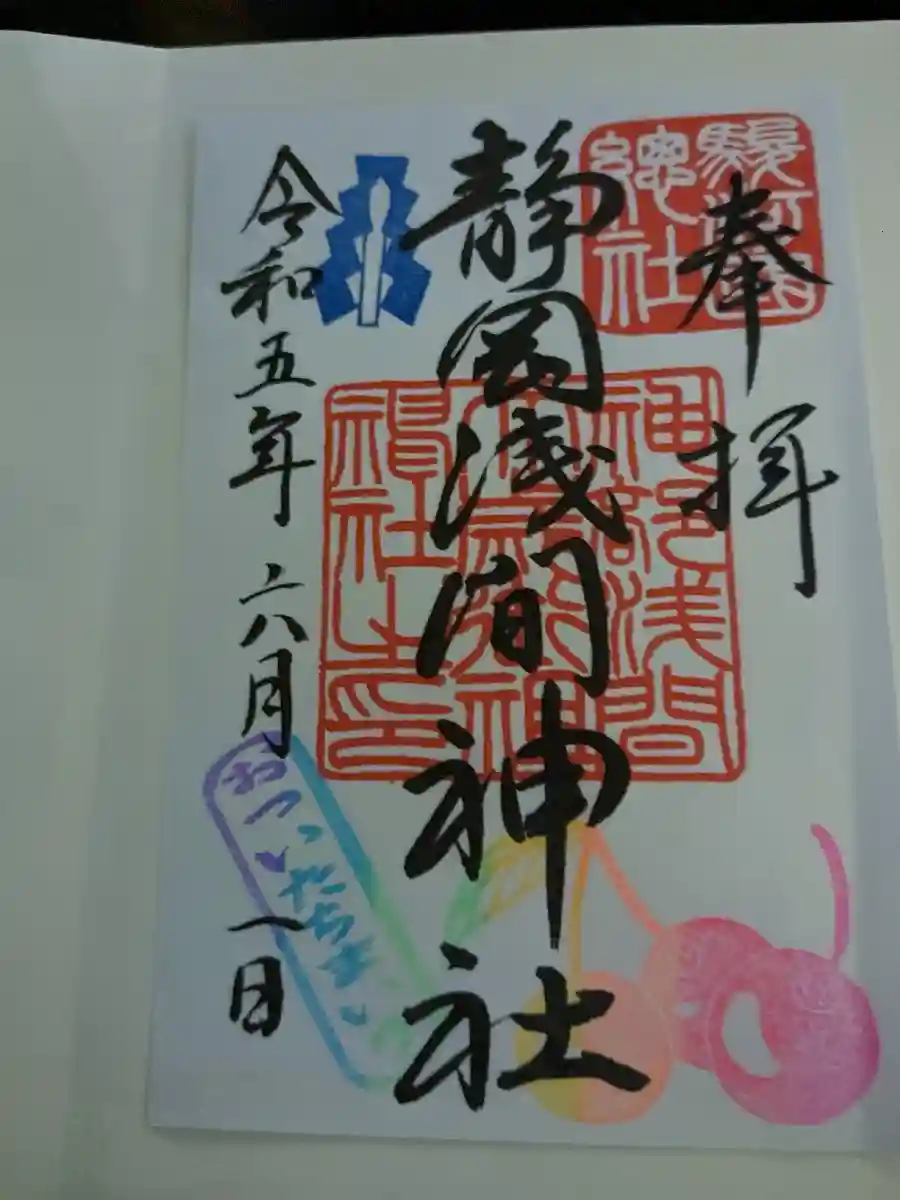 奉拝
駿河國
總社
静岡浅間神社
神部浅間
大歳御祖
神社之印
令和五年六月一日
おついたちまいり